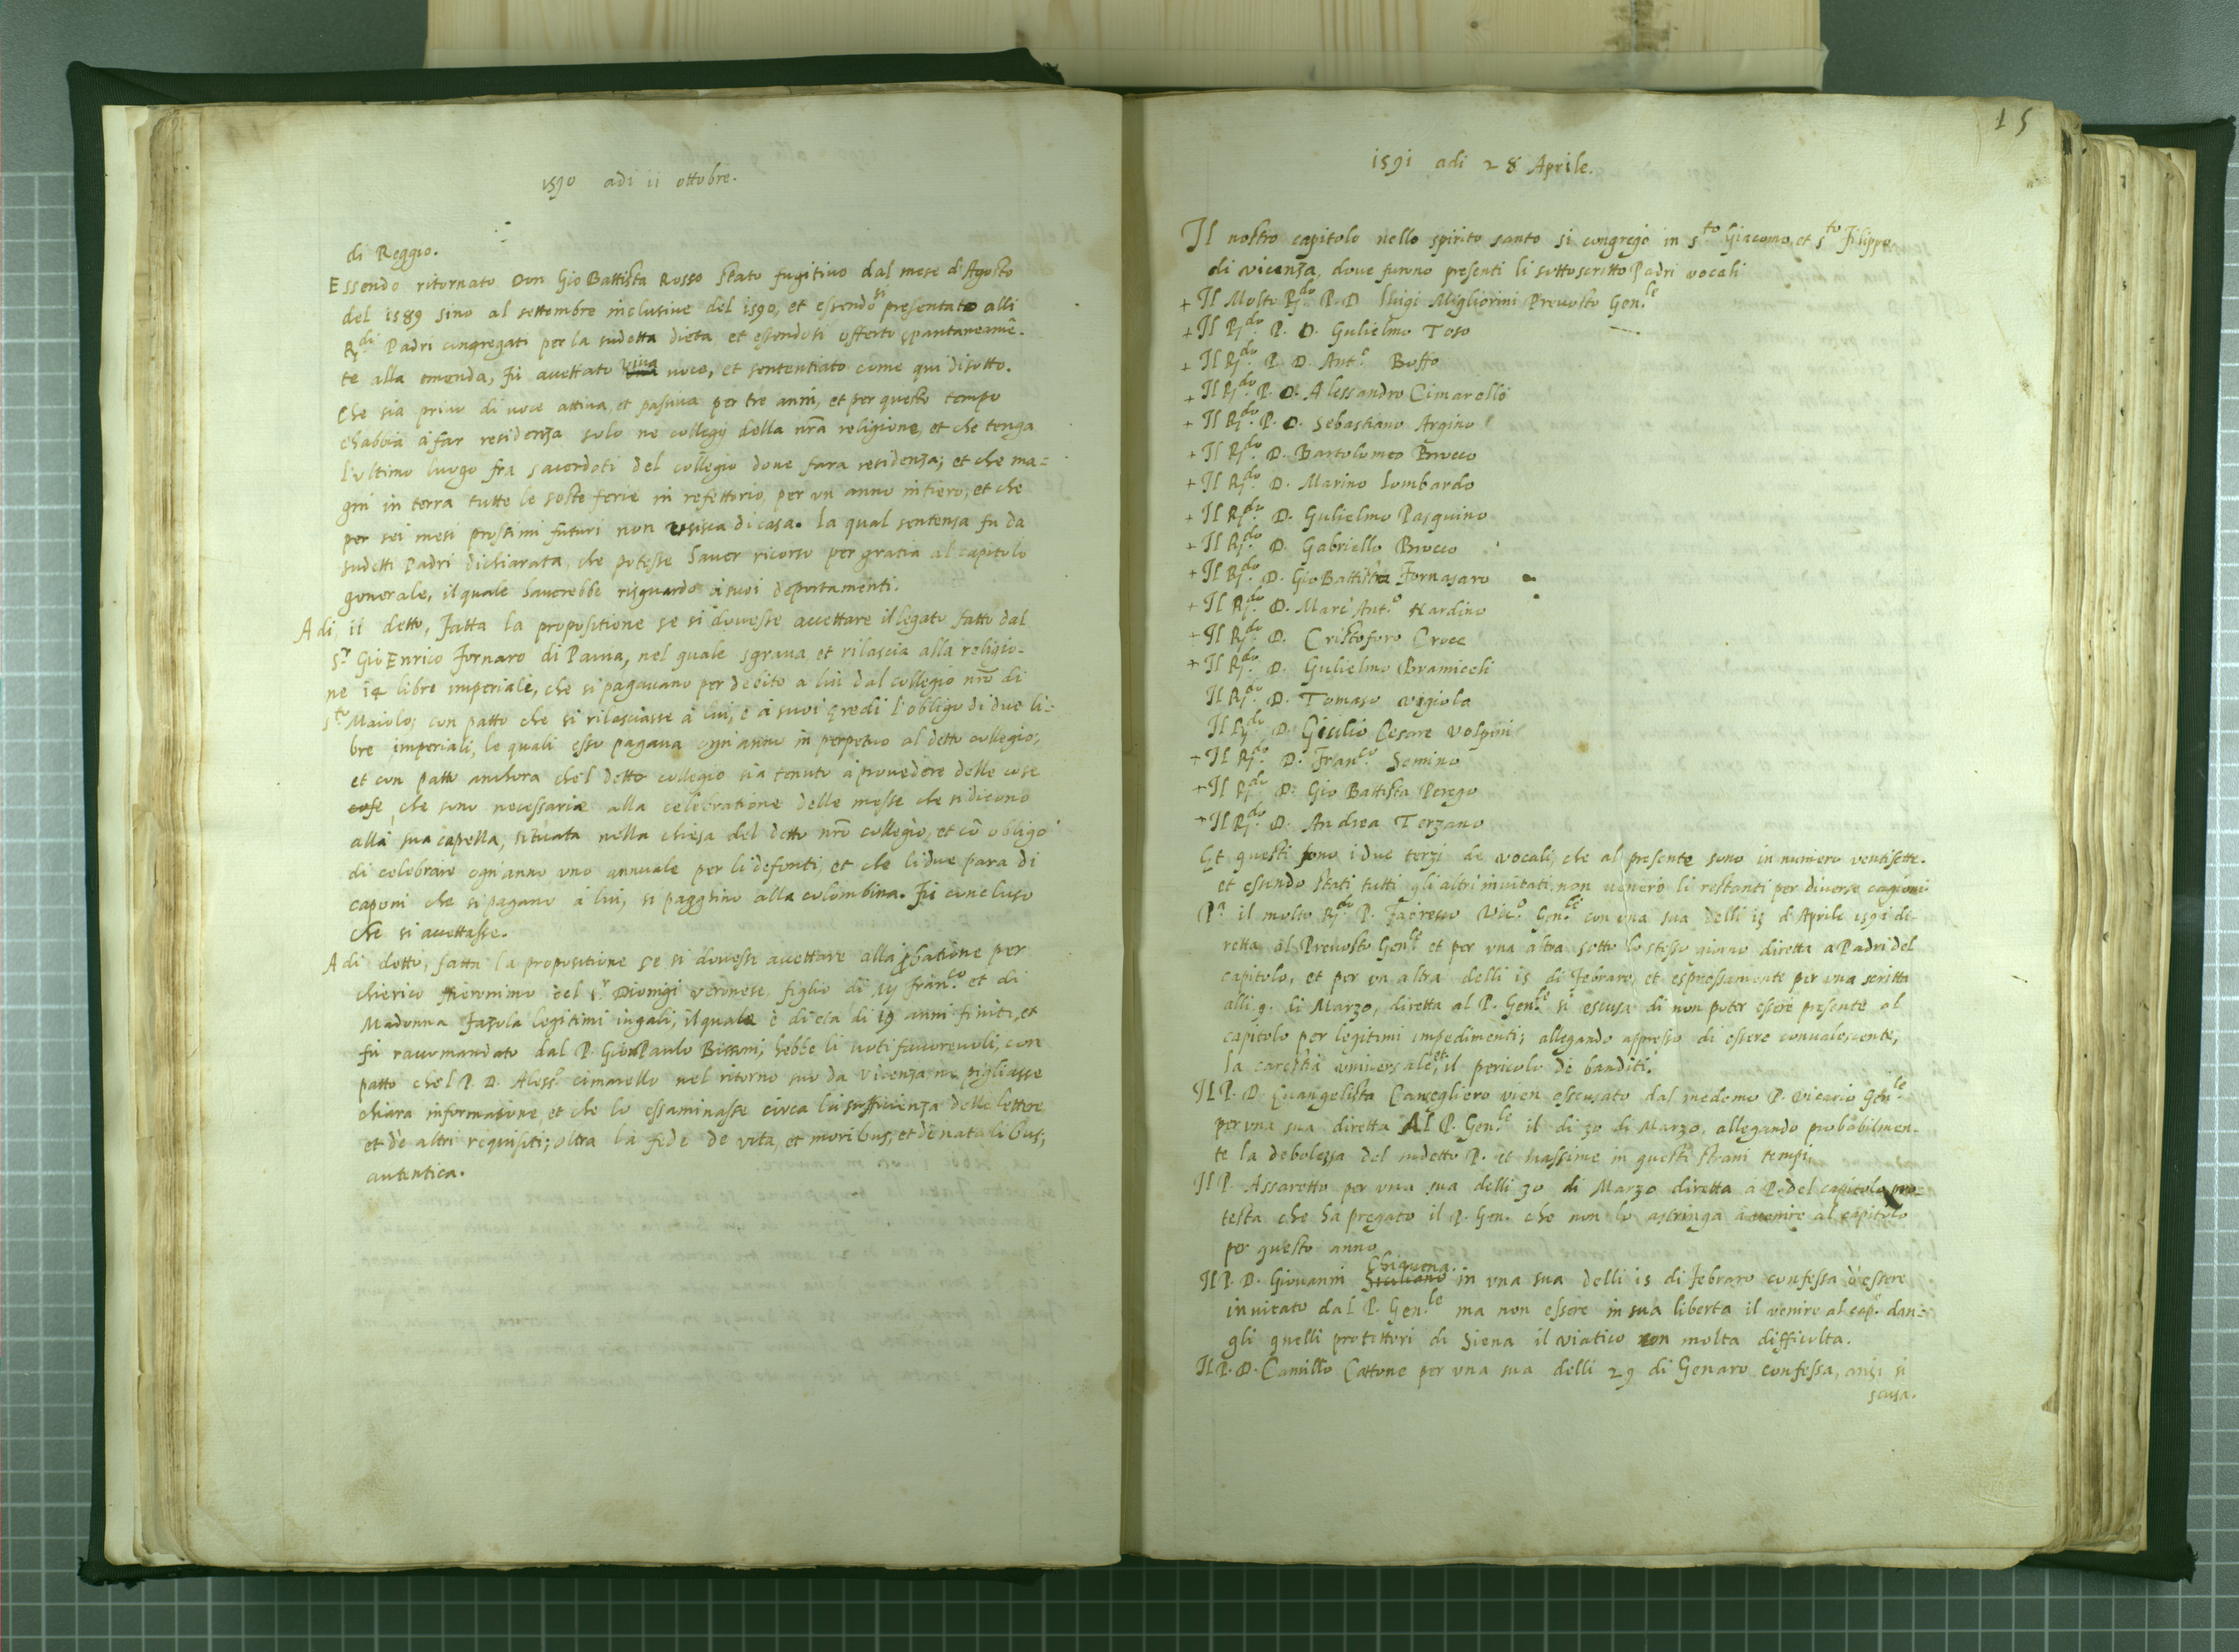 1590 adi 11 ottobre.
di Reggio.
Essendo ritornato Don Gio Battista Rosso stato fugitivo dal mese d'Agosto
del 1589 sino al settembre inclusive del 1590, et essendosi presentato alli
R.di Padri congregati per la sudetta dieta, et essendosi offerto spontaneamẽ-
te alla emenda, Fù accettato viva voce, et sententiato come qui disotto.
Che sia privo di voce attiva, et passiva per tre anni, et per questo tempo
ch'abbia à far residenza solo ne collegij della nr̃a religione, et che tenga
l'ultimo luogo fra sacerdoti del collegio dove farà residenza; et che ma=
gni in terra tutte le seste ferie in refettorio, per un anno intiero; et che
per sei mesi prossimi futuri non esisca di casa. La qual sentenza fu da
sudetti Padri dichiarata, che potesse haver ricorso per gratia al capitolo
generale, il quale haverebbe risguardo à suoi deportamenti.
Adi, 11 detto, Fatta la propositione se si dovesse accettare il legato fatto dal
S.r Gio Enrico Fornaro di Pavia, nel quale sgrava, et rilascia alla religio-
ne 14 libre imperiale, che si pagavano per debito a lui dal collegio nrõ di
S.to Maiolo; con patto che si rilasciasse à lui, e à suoi heredi l'obligo di due li=
bre imperiali, le quali esso pagava ogn'anno in perpetuo al detto collegio;
et con patto anchora che'l detto collegio sia tenuto à provedere delle cose
cose che sono necessarie alla celebratione delle messe che si dicono
alla sua capella, situata nella chiesa del detto nrõ collegio, et cõ obligo
di celebrare ogn'anno uno annuale per li defonti, et che li due para di
caponi che si pagano à lui, si paghino alla colombina. Fù concluso
che si accettasse.
Adi detto, fatta la propositione se si dovesse accettare alla ꝓbatione per
chierico Hieronimo del S.r Dionigi veronese, figlio di Franc.o et di
Madonna Fasola legitimi iugali, il quale è di età di 19 anni finiti, et
fù raccomandato dal P. Gio Paulo Bissoni; hebbe li voti favorevoli, con
patto che'l P. D. Aless.o cimarello nel ritorno suo da Vicenza ne pigliasse
chiara informatione, et che lo essaminasse circa la sufficienza delle lettere
et de altri requisiti; oltra la fede de vita, et moribus, et de natalibus,
autentica.
15
1591 adi 28 Aprile.
Il nostro capitolo nello spirito santo si congregò in S.to Giacomo, et S.to Filippo
di vicenza, dove furono presenti li sottoscritto Padri vocali
+ Il Molto R.do P. D. Luigi Migliorini Prevosto Gen.le
+ Il R.do P. D. Gulielmo Toso
+ Il R.do P. D. Ant.o Boffo
+ Il R.do P. D. Alessandro Cimarello
+ Il R.do P. D. Sebastiano Argino
+ Il R.do D. Bartolomeo Brocco
+ Il R.do D. Marino Lombardo
+ Il R.do D. Gulielmo Pasquino
+ Il R.do D. Gabriello Brocco
+ Il R.do D. Gio Battista Fornasaro
+ Il R.do D. Marc'Ant.o Nardino
+ Il R.do D. Cristoforo Croce
+ Il R.do D. Gulielmo Bramiceli
Il R.do D. Tomaso vigiola
Il R.do D. Giulio Cesare Volpini
+ Il R.do D. Franc.o Semino
+ Il R.do D. Gio Battista Perego
+ Il R.do D. Andrea Terzano
Et questi sono i due terzi de vocali, che al presente sono in numero ventisette.
et essendo stati tutti gli altri invitati, non venero li restanti per diverse cagioni
P.a il molto R.do P. Vic.o Gen.le con una sua delli 13 d'Aprile 1591 di-
retta al Prevosto Gen.le et per una altra sotto lo stesso giorno diretta a Padri del
capitolo, et per un altra delli 15 di Febraro, et espressamente per una scritta
alli 9. di Marzo, diretta al P. Gen.le si escusa di non poter essere presente al
capitolo per legitimi impedimenti; allegando appresso di essere convalescente,
la carestia universale, et il pericolo de banditi.
Il P. D. Evangelista Cansegliero vien escusato dal medemo P. vicario Gen.le
per una sua diretta Al P. Gen.le il di 30 di Marzo, allegando probabilmen-
te la debolezza del sudetto P. et massime in questi strani tempi.
Il P. Assaretto per una sua delli 30 di Marzo diretta à P. del capitolo pro=
testa che hà pregato il P. Gen. che non lo astringa à venire al capitolo
per questo anno
Il P. D. Giovanni Chiquena in una sua delli 15 di Febraro confessa d'essere
invitato dal P. Gen.le ma non essere in sua libertà il venire al cap.o dan=
gli quelli protettori di Siena il viatico con molta difficulta.
Il P. D. Camillo Cattone per una sua delli 29 di Genaro confessa, anzi si
scusa.